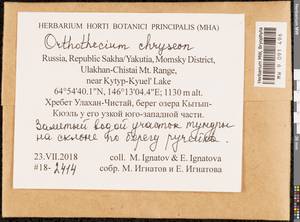 HERBARIUM HORTI BOTANICI PRINCIPALIS (MHA)
Orthothecium chryseon
Russia, Republic Sakha/Yakutia, Momsky District,
Ulakhan-Chistai Mt. Range,
near Kytyp-Kyuel' Lake
64°54'40.1"N, 146°13'04.4"E; 1130 m alt.
Хребет Улахан-Чистай, берег озера Кытып-
Кюэль у его узкой юго-западной части.
Залитый водой участок тундры
на склоне по берегу ручейка.
23.VII.2018 coll. M. Ignatov & E. Ignatova
#18-2414 собр. М. Игнатов и Е. Игнатова
Herbarium MW, Bryophyta